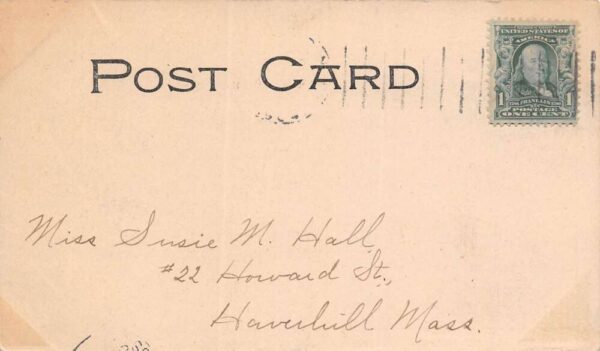 POST CARD
UNITED STATES OF
AMERICA
1 FRANKLIN 1
POSTAGE
ONE CENT
Miss Susie M. Hall
#22 Howard St.,
Haverhill Mass.